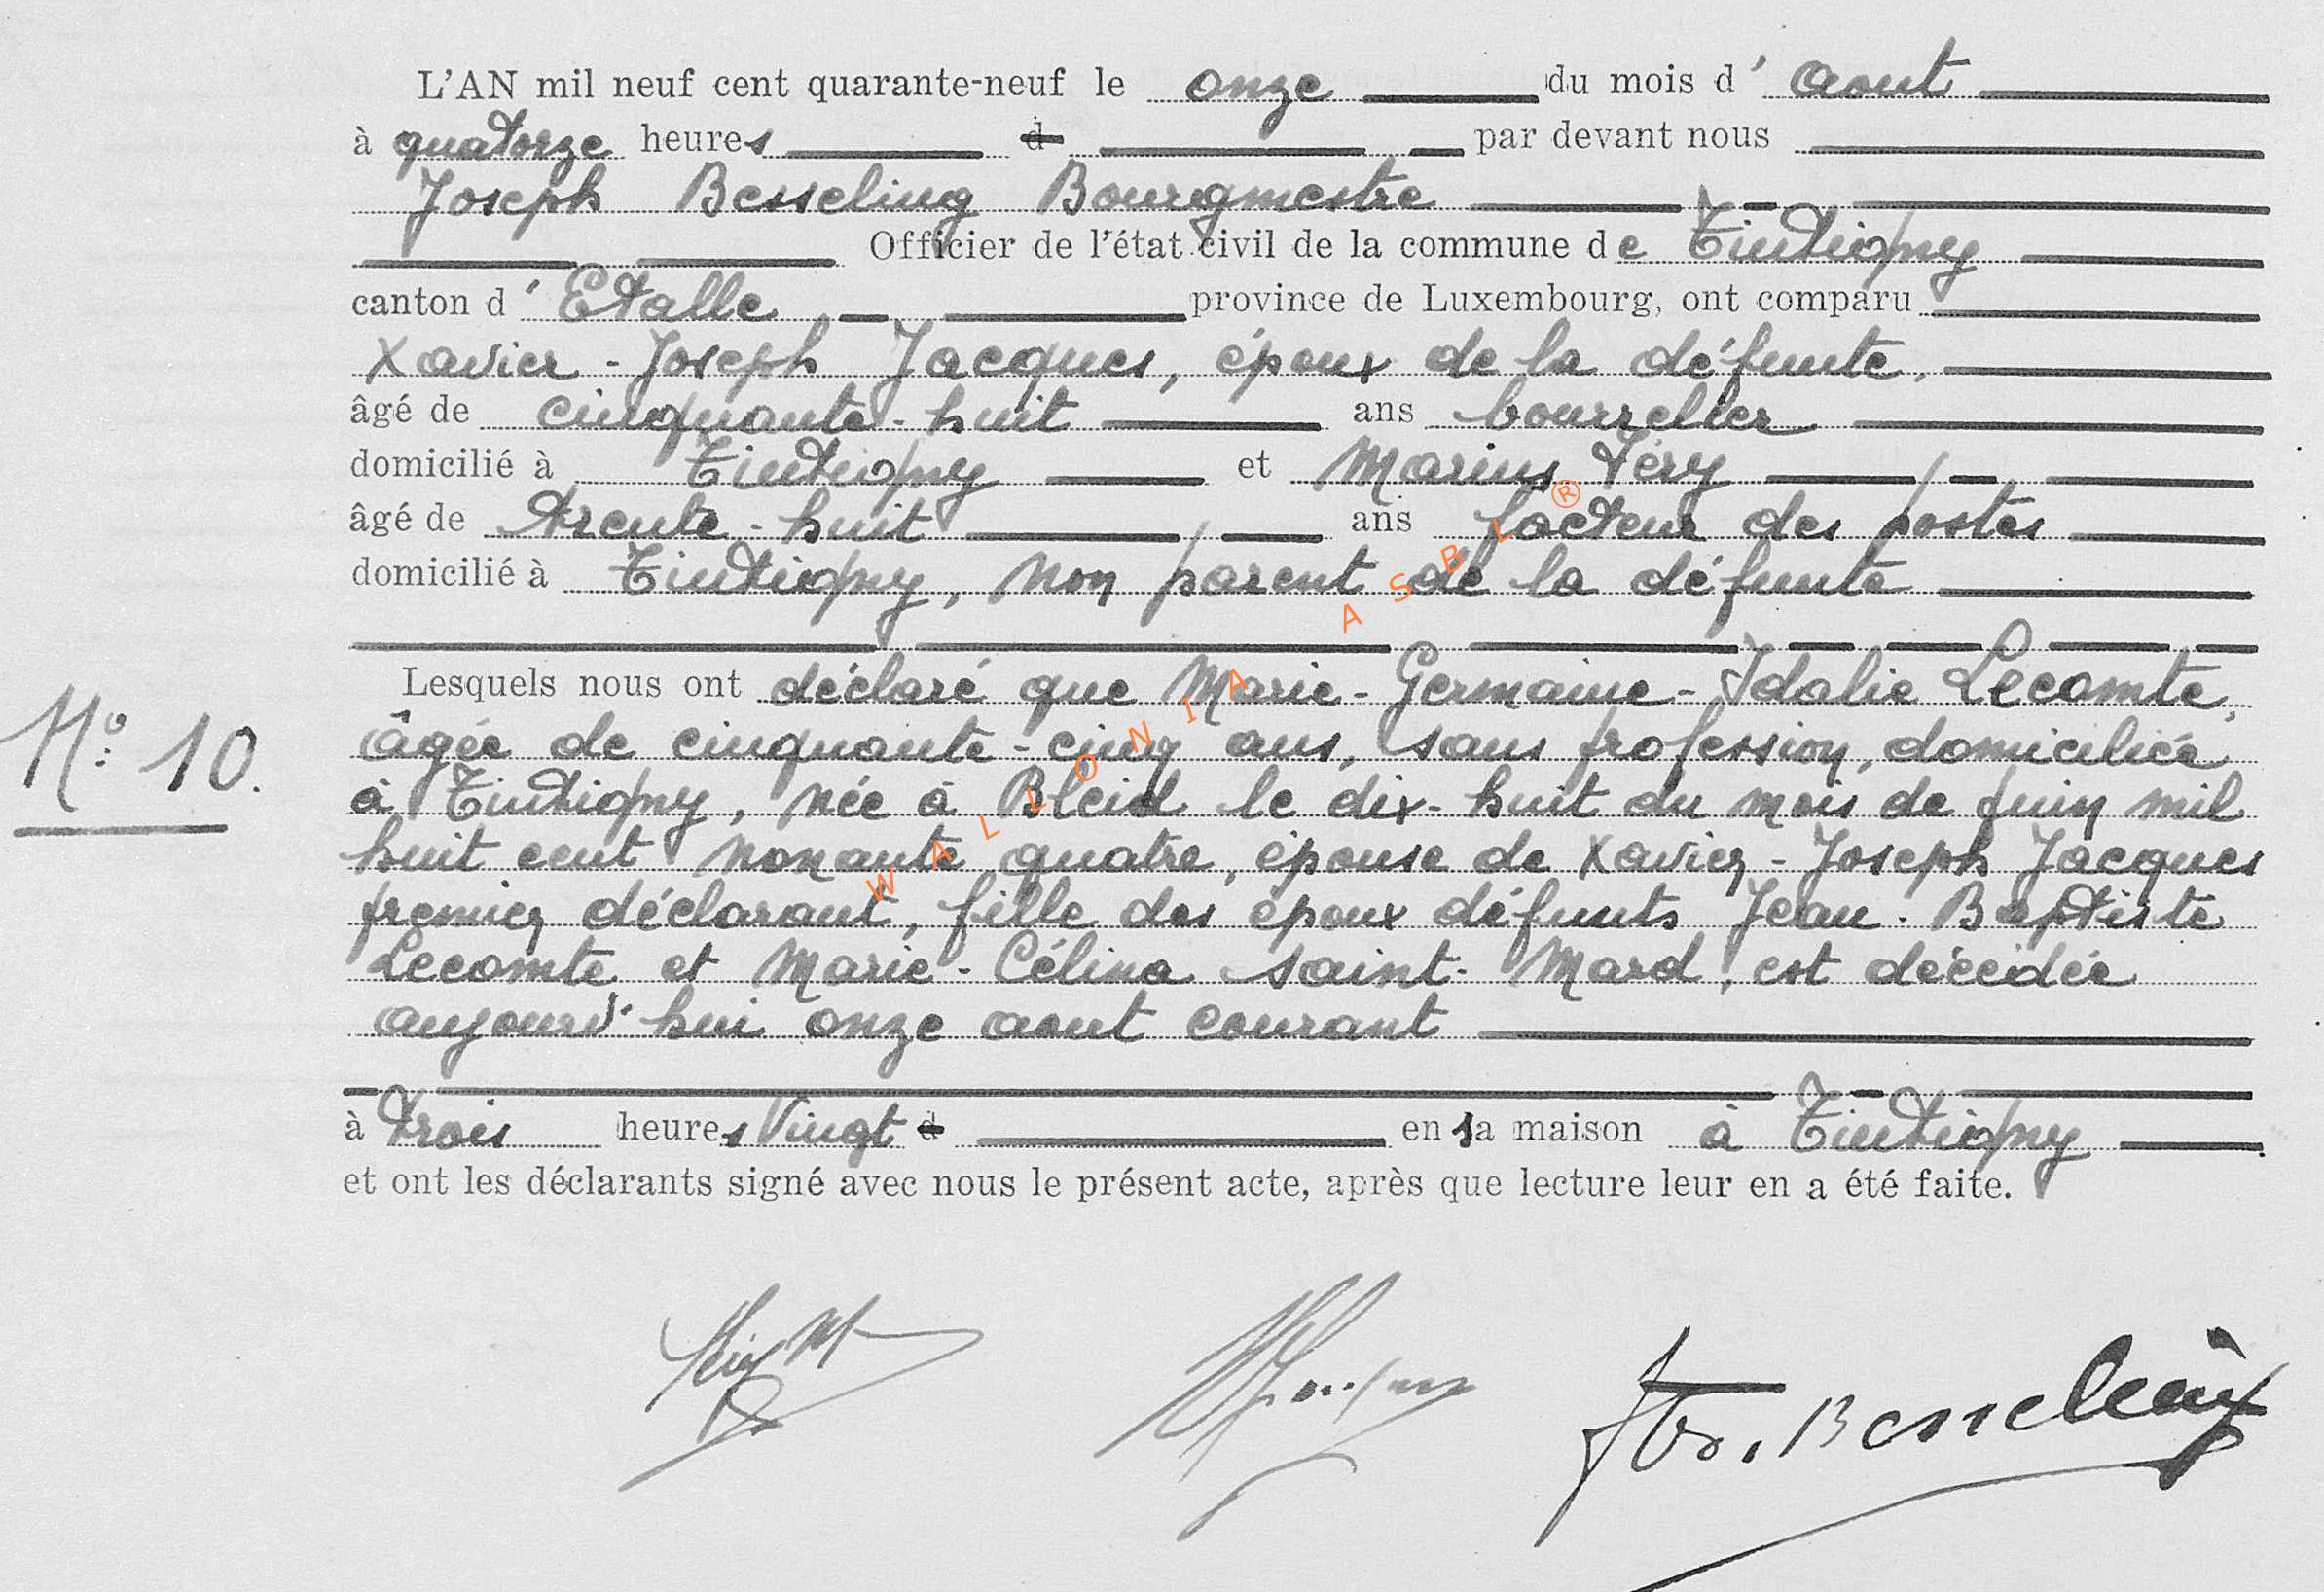 L'AN mil neuf cent quarante-neuf le onze du mois d' Aout
à quatorze heures d par devant nous
Joseph Besseling Bourgmestre
Officier de l'état civil de la commune de Tintigny
canton d' Etalle province de Luxembourg, ont comparu
Xavier-Joseph Jacques, époux de la défunte,
âgé de cinquante-huit ans bourrelier
domicilié à Tintigny et Marius Féry
âgé de trente-huit ans facteur des postes
domicilié à Tintigny, non parent de la défunte
Lesquels nous ont déclaré que Marie-Germaine-Idalie Lecomte,
âgée de cinquante-cinq ans, sans profession, domiciliée
à Tintigny, née à Bleid le dix-huit du mois de juin mil
huit cent nonante quatre, épouse de Xavier-Joseph Jacques
premier déclarant, fille des époux défunts Jean-Baptiste
Lecomte et Marie-Célina Saint-Mard, est décédée
aujourd'hui onze aout courant
à trois heures vingt d en sa maison à Tintigny
et ont les déclarants signé avec nous le présent acte, après que lecture leur en a été faite.
N° 10.
WALLONIA ASBL ®
Jos. Besseling